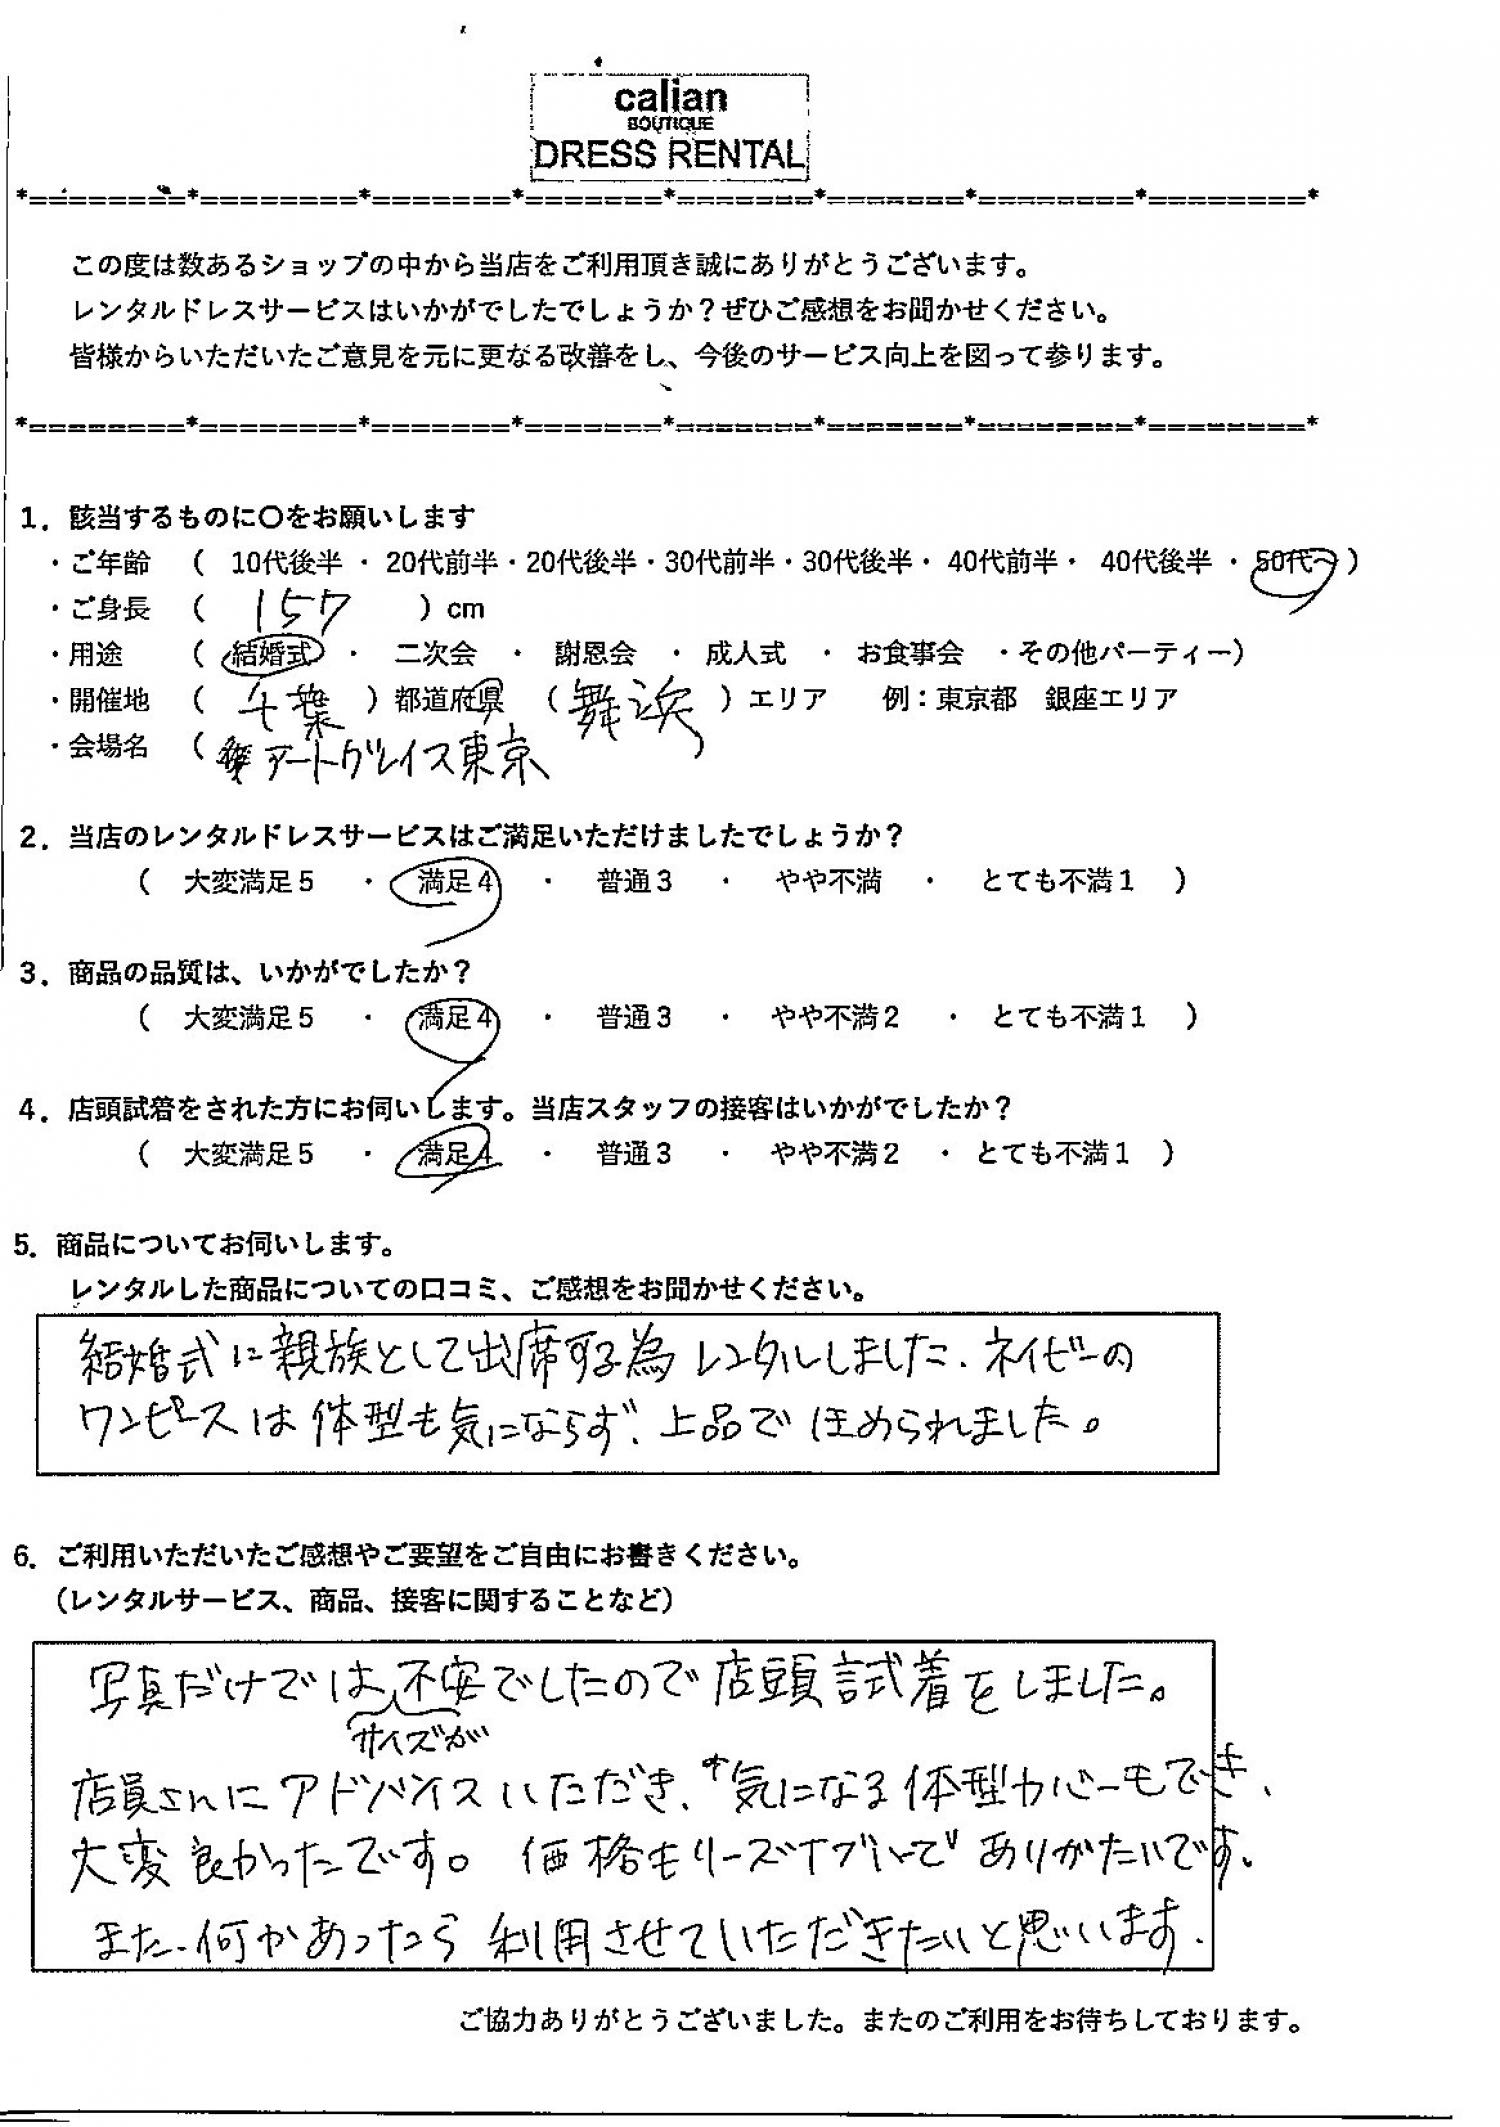 calian
BOUTIQUE
DRESS RENTAL
*========*========*=======*=======*=======*=======*========*========*
この度は数あるショップの中から当店をご利用頂き誠にありがとうございます。
レンタルドレスサービスはいかがでしたでしょうか？ぜひご感想をお聞かせください。
皆様からいただいたご意見を元に更なる改善をし、今後のサービス向上を図って参ります。
*========*========*=======*=======*=======*=======*========*========*
1．該当するものに〇をお願いします
・ご年齢 （ 10代後半 ・ 20代前半・20代後半・30代前半・30代後半・ 40代前半・ 40代後半 ・ 50代～）
・ご身長 （ 157 ）cm
・用途 （ 結婚式 ・ 二次会 ・ 謝恩会 ・ 成人式 ・ お食事会 ・その他パーティー）
・開催地 （ 千葉 ）都道府県 （ 舞浜 ）エリア 例：東京都 銀座エリア
・会場名 （ アートグレイス東京 ）
2．当店のレンタルドレスサービスはご満足いただけましたでしょうか？
（ 大変満足5 ・ 満足4 ・ 普通3 ・ やや不満 ・ とても不満1 ）
3．商品の品質は、いかがでしたか？
（ 大変満足5 ・ 満足4 ・ 普通3 ・ やや不満2 ・ とても不満1 ）
4．店頭試着をされた方にお伺いします。当店スタッフの接客はいかがでしたか？
（ 大変満足5 ・ 満足4 ・ 普通3 ・ やや不満2 ・ とても不満1 ）
5．商品についてお伺いします。
レンタルした商品についての口コミ、ご感想をお聞かせください。
結婚式に親族として出席する為レンタルしました、ネイビーの
ワンピースは体型も気にならず、上品でほめられました。
6．ご利用いただいたご感想やご要望をご自由にお書きください。
（レンタルサービス、商品、接客に関することなど）
写真だけでは、不安でしたので店頭試着をしました。
サイズが
店員さんにアドバイスいただき、気になる体型カバーもでき、
大変良かったです。価格もリーズナブルでありがたいです。
また、何かあったら利用させていただきたいと思います。
ご協力ありがとうございました。またのご利用をお待ちしております。